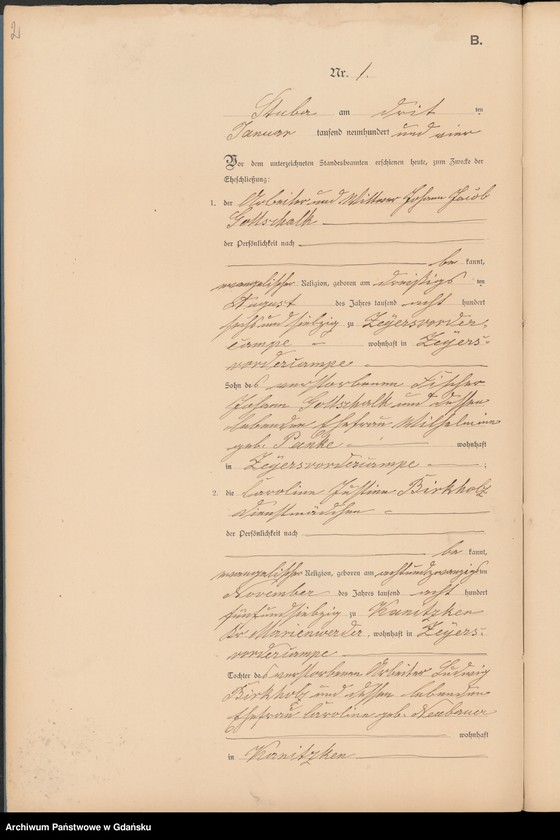 2
B.
Nr. 1.
Stuba am drit ten
Januar tausend neunhundert und vier
Vor dem unterzeichneten Standesbeamten erschienen heute, zum Zwecke der
Eheschließung:
1. der Arbeiter und Wittwer Johann Jacob
Gottschalk
der Persönlichkeit nach
be kannt,
evangelischer Religion, geboren am dreißigs ten
August des Jahres tausend acht hundert
sechsundsiebzig zu Zeyersvorder-
campe wohnhaft in Zeyers-
vordercampe
Sohn des verstorbenen Fischer
Johann Gottschalk und dessen
lebenden Ehefrau Wilhelmine
geb. Panke wohnhaft
in Zeyersvordercampe
2. die Caroline Justine Birkholz
Dienstmädchen
der Persönlichkeit nach
be kannt,
evangelischer Religion, geboren am achtundzwanzigs ten
November des Jahres tausend acht hundert
fünfundsiebzig zu Kanitzken
Kr. Marienwerder, wohnhaft in Zeyers-
vordercampe
Tochter des verstorbenen Arbeiter Ludwig
Birkholz und dessen lebenden
Ehefrau Caroline geb. Neubauer
wohnhaft
in Kanitzken
Archiwum Państwowe w Gdańsku